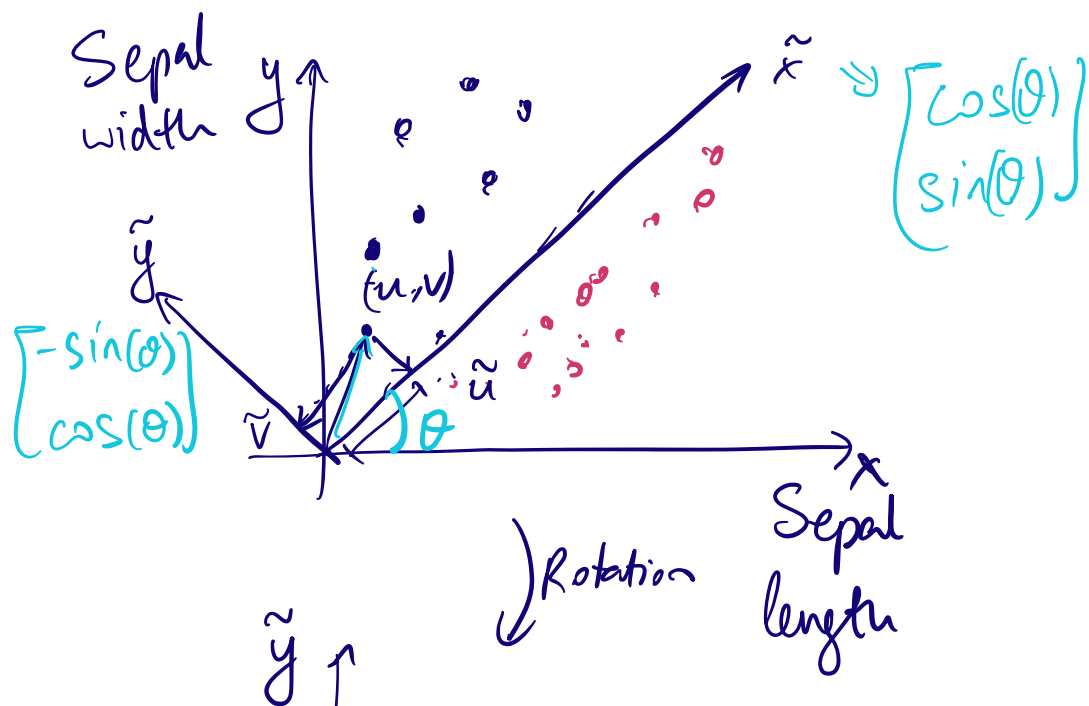 Sepal
width
y
x̃
[cos(θ)
sin(θ)]
ỹ
(u,v)
[-sin(θ)
cos(θ)]
ũ
ṽ
θ
x
Sepal
length
Rotation
ỹ